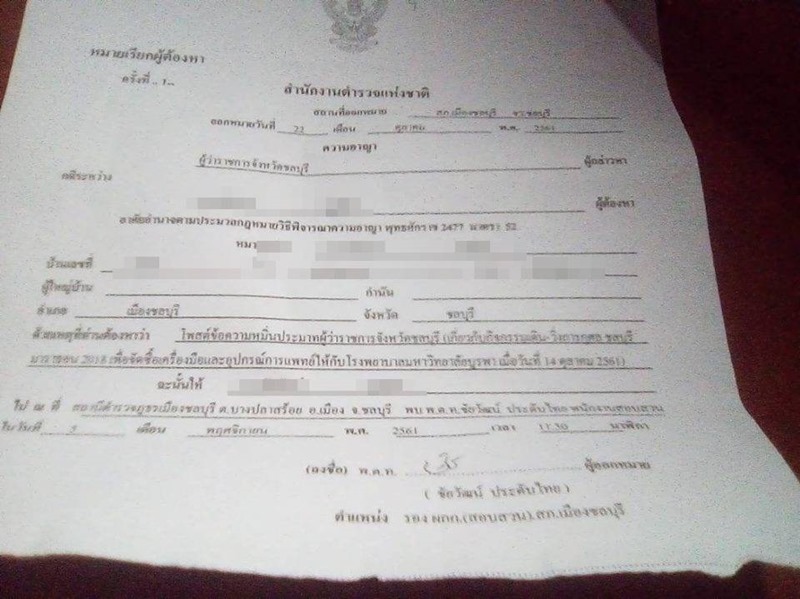 หมายเรียกผู้ต้องหา
ครั้งที่ ..1..
สำนักงานตำรวจแห่งชาติ
สถานที่ออกหมาย สภ.เมืองชลบุรี จว.ชลบุรี
ออกหมายวันที่ 22 เดือน ตุลาคม พ.ศ. 2561
ความอาญา
ผู้ว่าราชการจังหวัดชลบุรี ผู้กล่าวหา
คดีระหว่าง
ผู้ต้องหา
อาศัยอำนาจตามประมวลกฎหมายวิธีพิจารณาความอาญา พุทธศักราช 2477 มาตรา 52
บ้านเลขที่
ผู้ใหญ่บ้าน กำนัน
อำเภอ เมืองชลบุรี จังหวัด ชลบุรี
ด้วยเหตุที่ท่านต้องหาว่า โพสต์ข้อความหมิ่นประมาทผู้ว่าราชการจังหวัดชลบุรี (เกี่ยวกับกิจกรรมเดิน-วิ่งการกุศล ชลบุรี
มาราธอน 2018 เพื่อจัดซื้อเครื่องมือและอุปกรณ์การแพทย์ให้กับโรงพยาบาลมหาวิทยาลัยบูรพา เมื่อวันที่ 14 ตุลาคม 2561)
ฉะนั้นให้
ไป ณ ที่ สถานีตำรวจภูธรเมืองชลบุรี ต.บางปลาสร้อย อ.เมือง จ.ชลบุรี พบ พ.ต.ท.ชัยวัฒน์ ประดับไทย พนักงานสอบสวน
ในวันที่ 5 เดือน พฤศจิกายน พ.ศ. 2561 เวลา 11.30 นาฬิกา
(ลงชื่อ) พ.ต.ท. ผู้ออกหมาย
( ชัยวัฒน์ ประดับไทย )
ตำแหน่ง รอง ผกก.(สอบสวน).สภ.เมืองชลบุรี